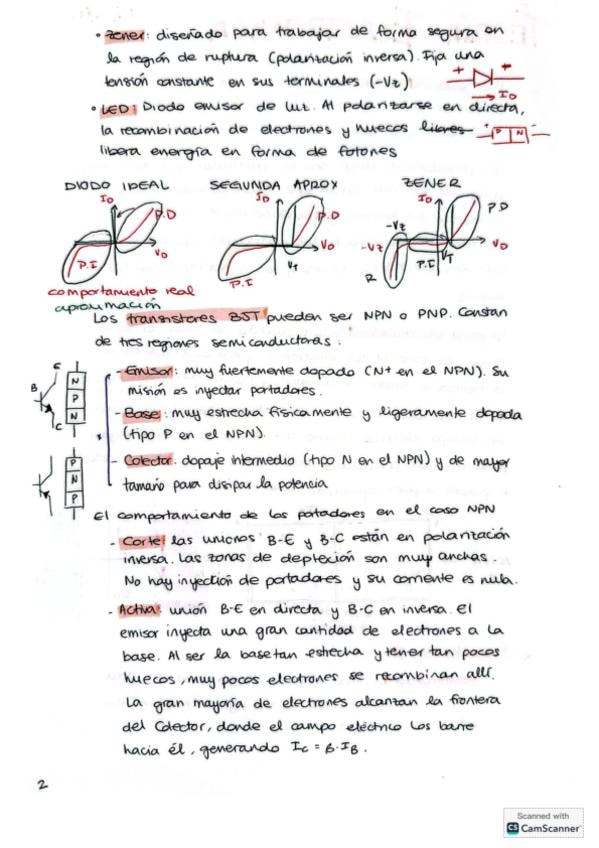 • Zener: diseñado para trabajar de forma segura en
la región de ruptura (polarización inversa). Fija una
tensión constante en sus terminales (-Vz)
+ +
ID
• LED: Diodo emisor de luz. Al polarizarse en directa,
la recombinación de electrones y huecos libres
+ P N -
libera energía en forma de fotones
DIODO IDEAL SEGUNDA APROX ZENER
ID ID ID
P.D P.D P.D
VD VD -Vz -Vz VD
P.I P.I VT R P.I VT
comportamiento real
aproximación
Los transistores BJT pueden ser NPN o PNP. Constan
de tres regiones semiconductoras:
- Emisor: muy fuertemente dopado (N+ en el NPN). Su
misión es inyectar portadores.
- Base: muy estrecha físicamente y ligeramente dopada
(tipo P en el NPN).
- Colector: dopaje intermedio (tipo N en el NPN) y de mayor
tamaño para disipar la potencia
B
N
P
N
P
N
P
El comportamiento de los portadores en el caso NPN
- Corte: las uniones B-E y B-C están en polarización
inversa. Las zonas de depleción son muy anchas.
No hay inyección de portadores y su corriente es nula.
- Activa: unión B-E en directa y B-C en inversa. El
emisor inyecta una gran cantidad de electrones a la
base. Al ser la base tan estrecha y tener tan pocos
huecos, muy pocos electrones se recombinan allí.
La gran mayoría de electrones alcanzan la frontera
del Colector, donde el campo eléctrico los barre
hacia él, generando Ic = β·IB.
2
Scanned with
CS CamScanner